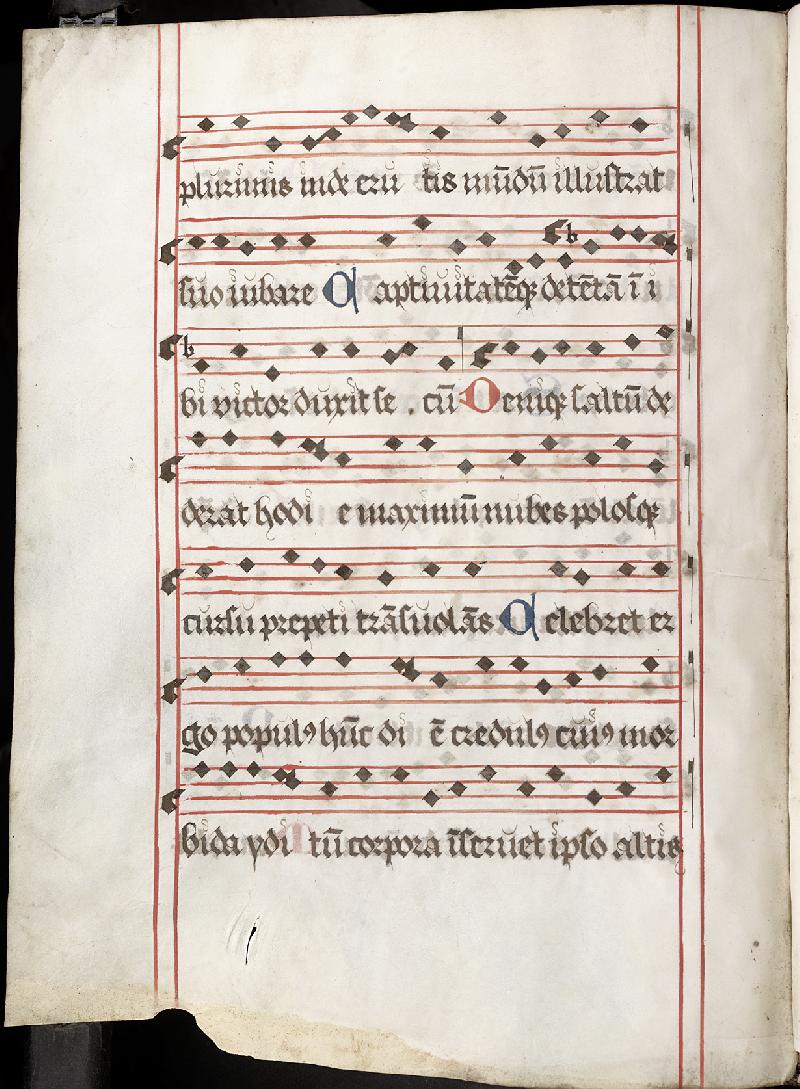 plurimis inde eru tis mūdū illustrat
suo iubare C aptiuitatēq; detētā ī i
bi victor duxit se . cū Deniq; saltū de
derat hodi e maximū nubes polosq;
cursu prepeti trāsuolās C elebret er
go populꝰ hūc di ē credulꝰ cuiꝰ mor
bida ydi tū corpora īseruet ipso altis